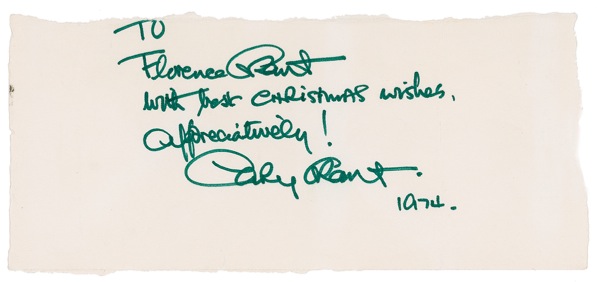 TO
Florence Grant
with best CHRISTMAS wishes,
Appreciatively!
Cary Grant.
1974.